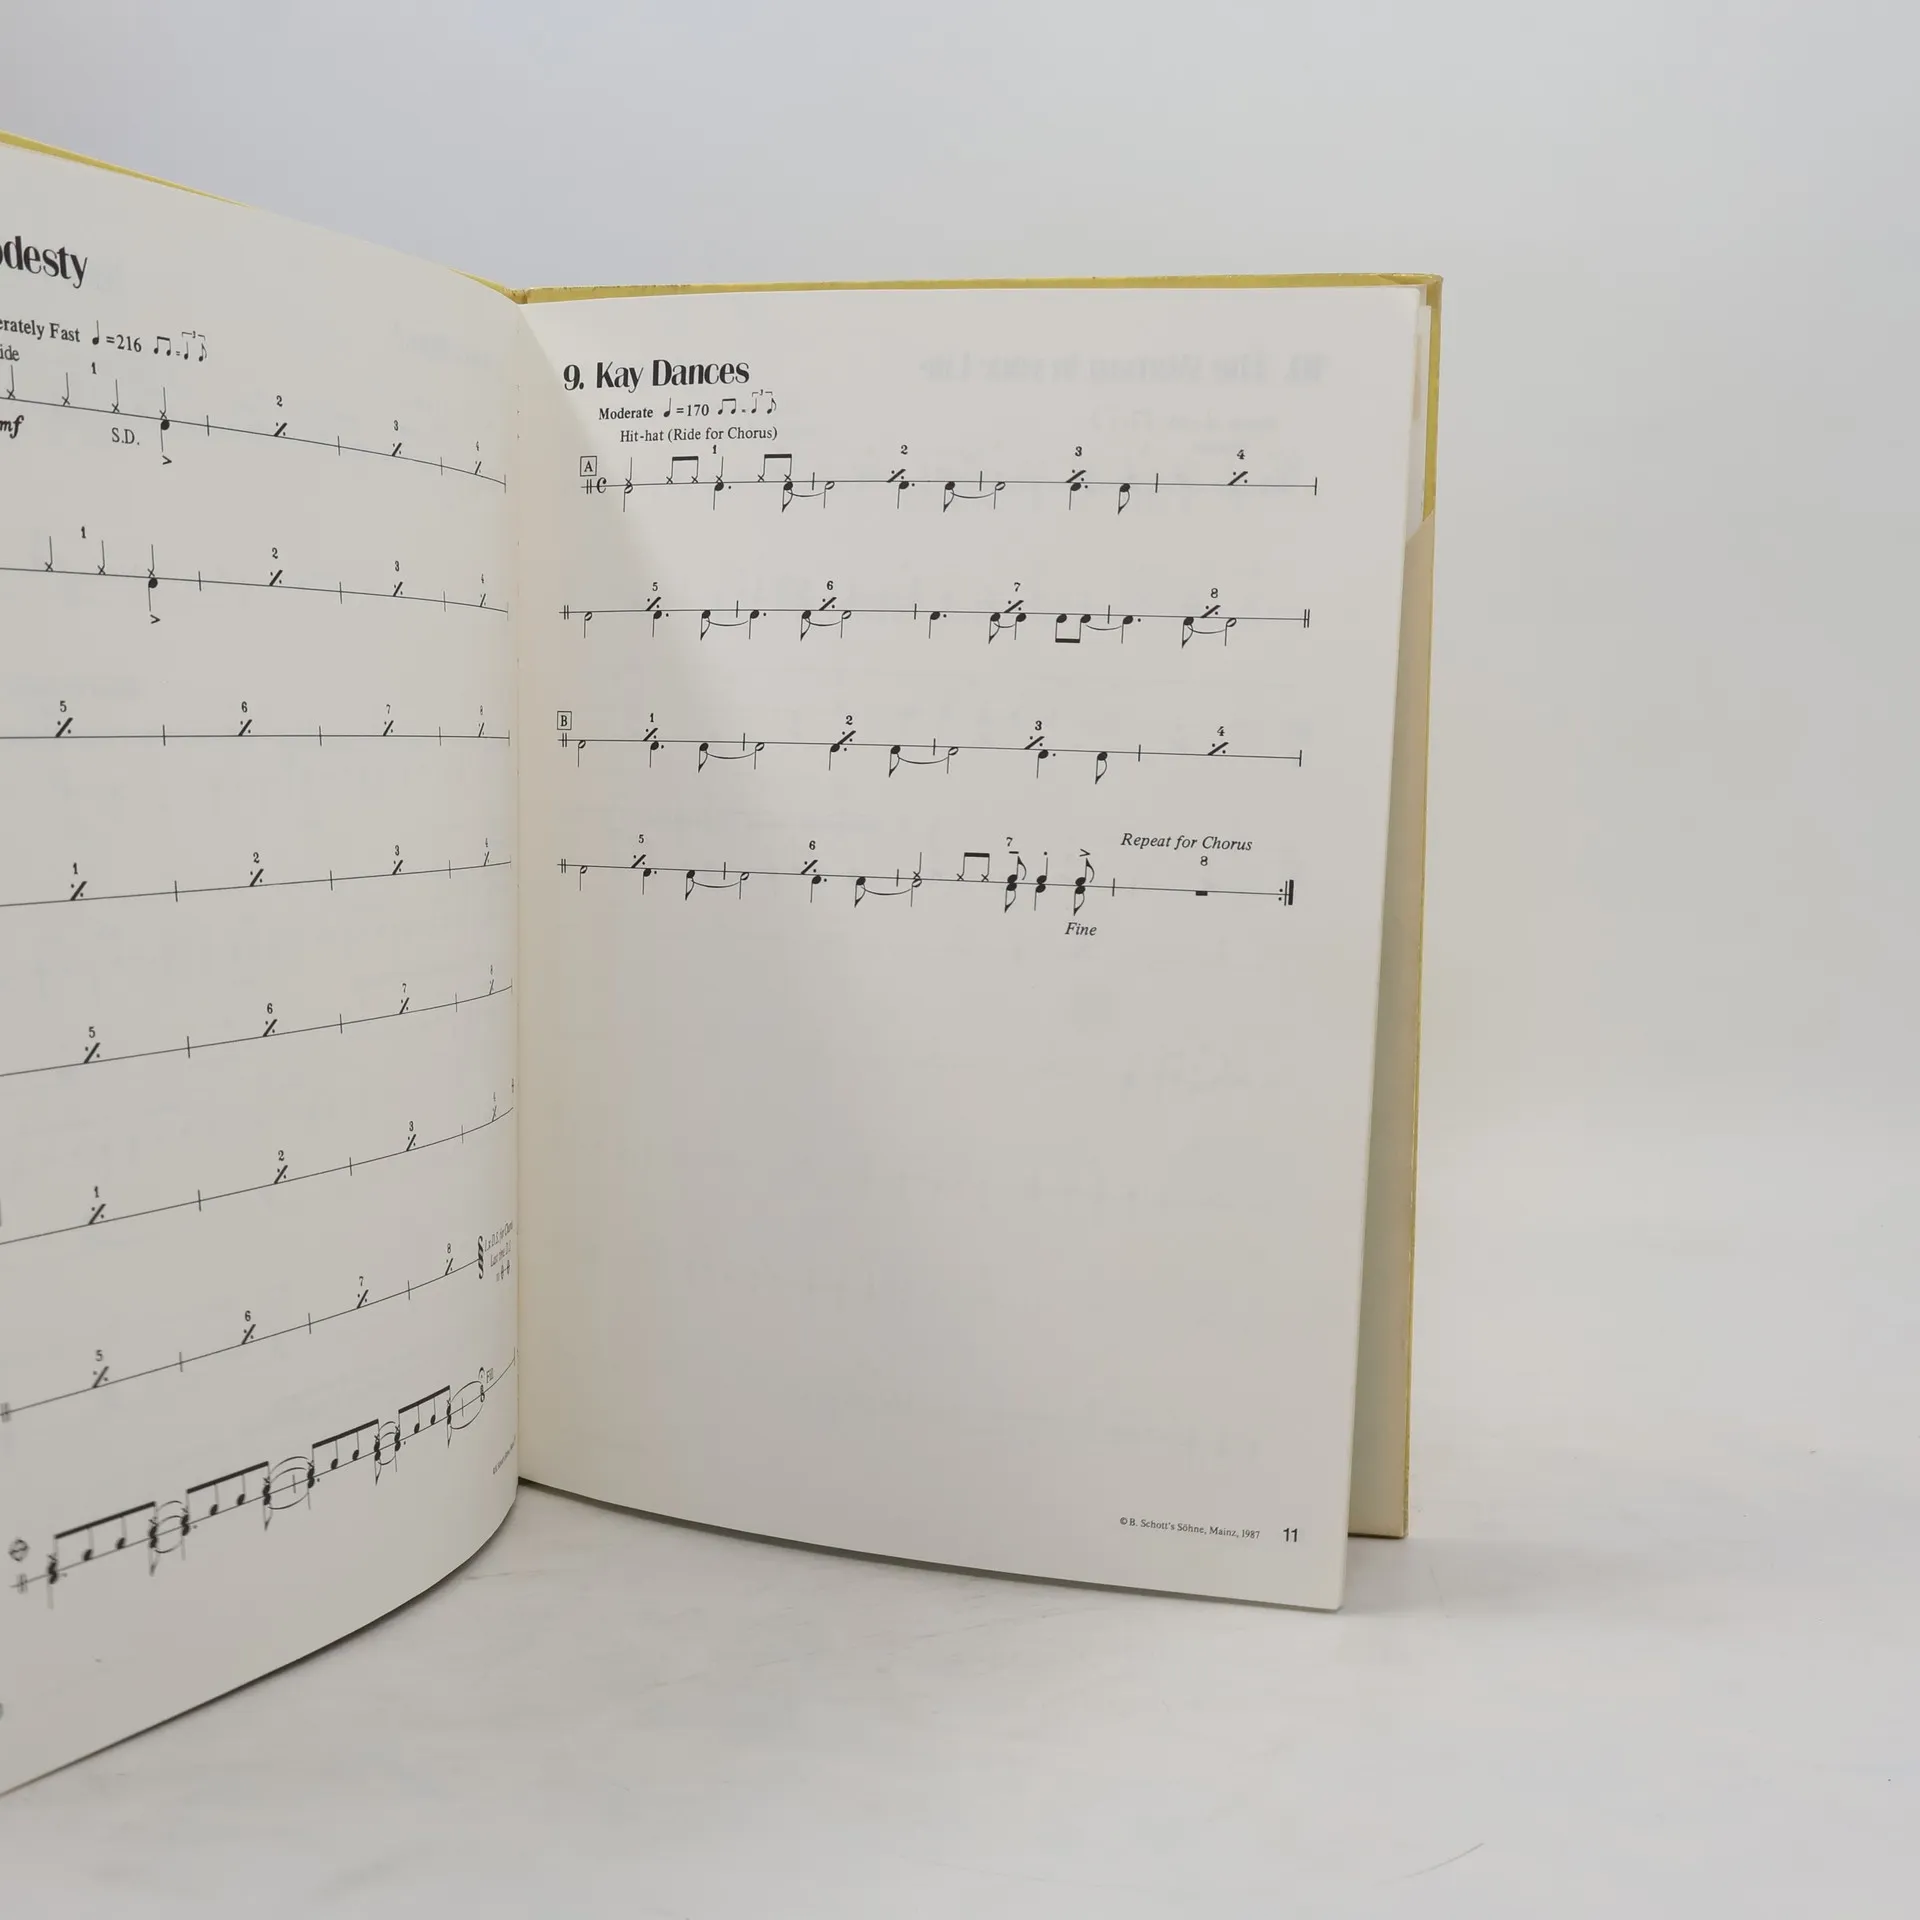 desty
erately Fast =216
ide
1
2
3
4
mf
S.D.
1
2
3
4
5
6
7
8
1
2
3
4
5
6
7
8
1
2
3
4
5
6
7
8
Fill
9. Kay Dances
Moderate =170 3
Hit-hat (Ride for Chorus)
A
1
2
3
4
5
6
7
8
B
1
2
3
4
5
6
7
Repeat for Chorus
8
Fine
© B. Schott's Söhne, Mainz, 1987 11